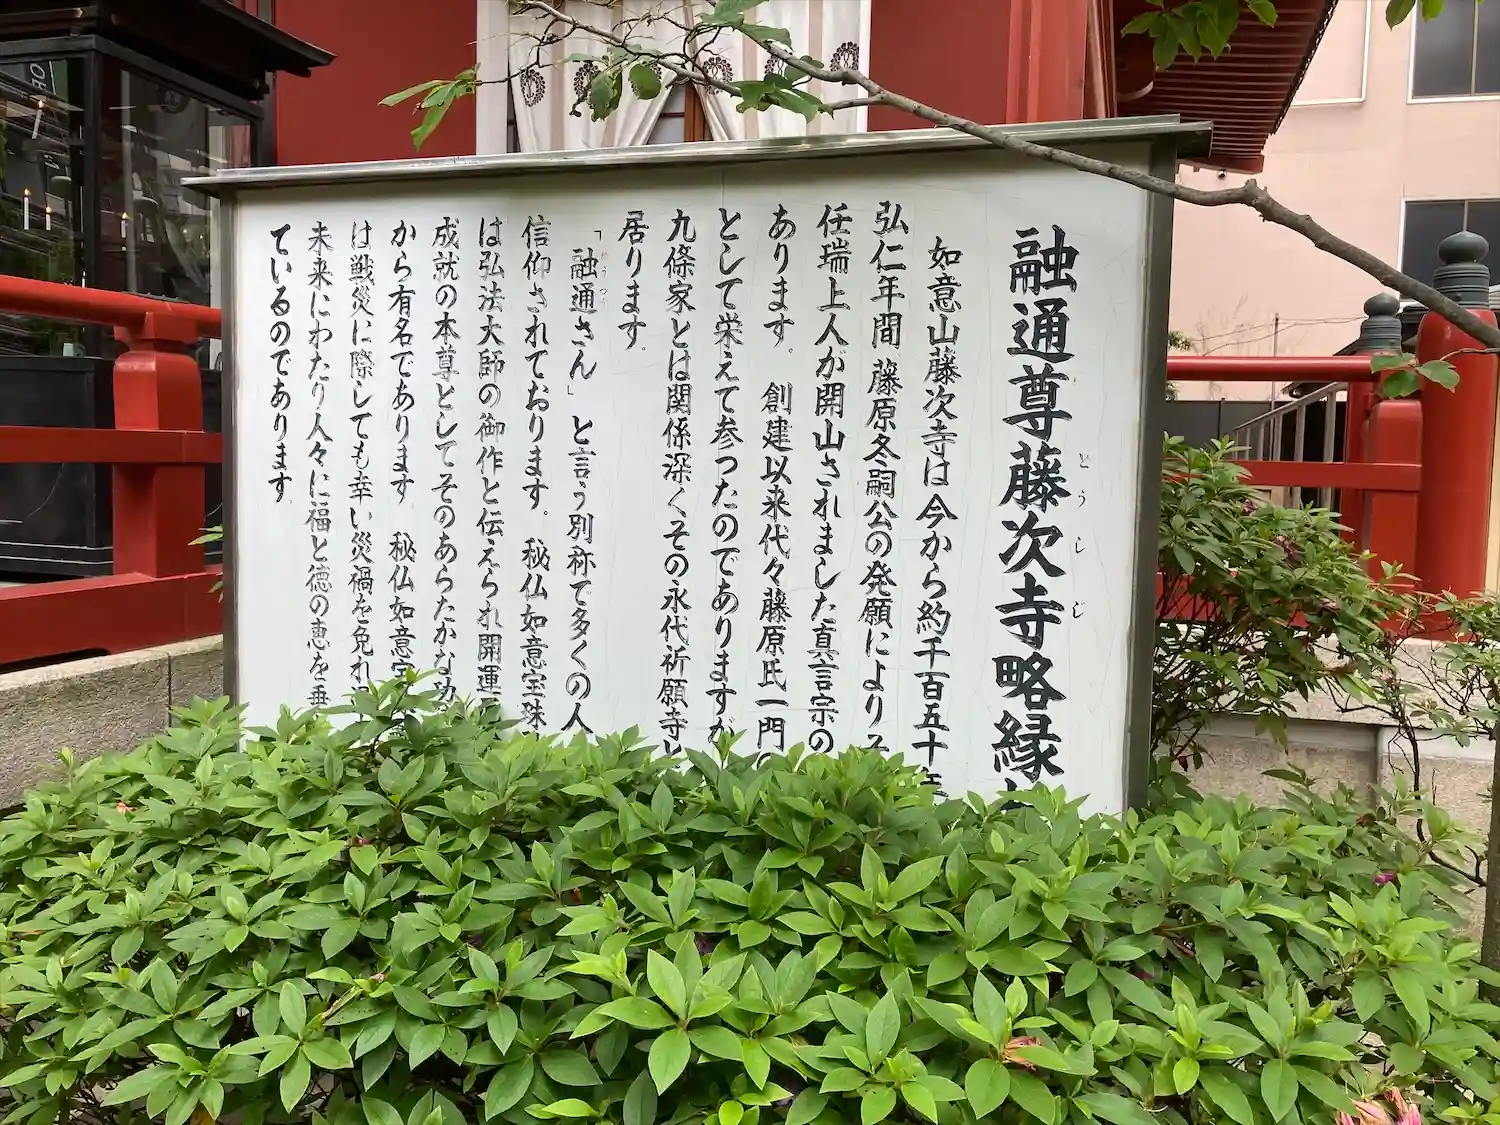 融通尊藤次寺略縁
とうじじ
如意山藤次寺は今から約千百五十年
弘仁年間藤原冬嗣公の発願によりそ
任瑞上人が開山されました真言宗の
あります。創建以来代々藤原氏一門の
として栄えて参つたのでありますが
九條家とは関係深くその永代祈願寺と
居ります。
「融通さん」と言う別称で多くの人
信仰されております。秘仏如意宝珠
は弘法大師の御作と伝えられ開運
成就の本尊としてそのあらたかな功
から有名であります 秘仏如意宝
は戦災に際しても幸い災禍を免れ
未来にわたり人々に福と徳の恵を垂
ているのであります。